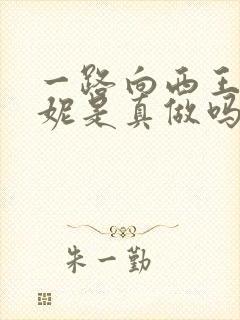 一路向西王
妮是真做吗
朱一勤